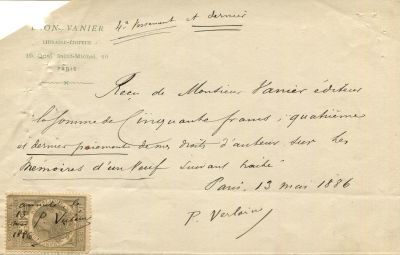 LÉON VANIER
LIBRAIRE-ÉDITEUR
19, Quai Saint-Michel, 19
PARIS
4e paiement et dernier
Reçu de Monsieur Vanier éditeur
la somme de Cinquante francs ; quatrième
et dernier paiement de mes droits d'auteur sur les
Mémoires d'un Veuf suivant traité
Paris, 13 mai 1886
P. Verlaine
le
13
mai
1886
P. Verlaine